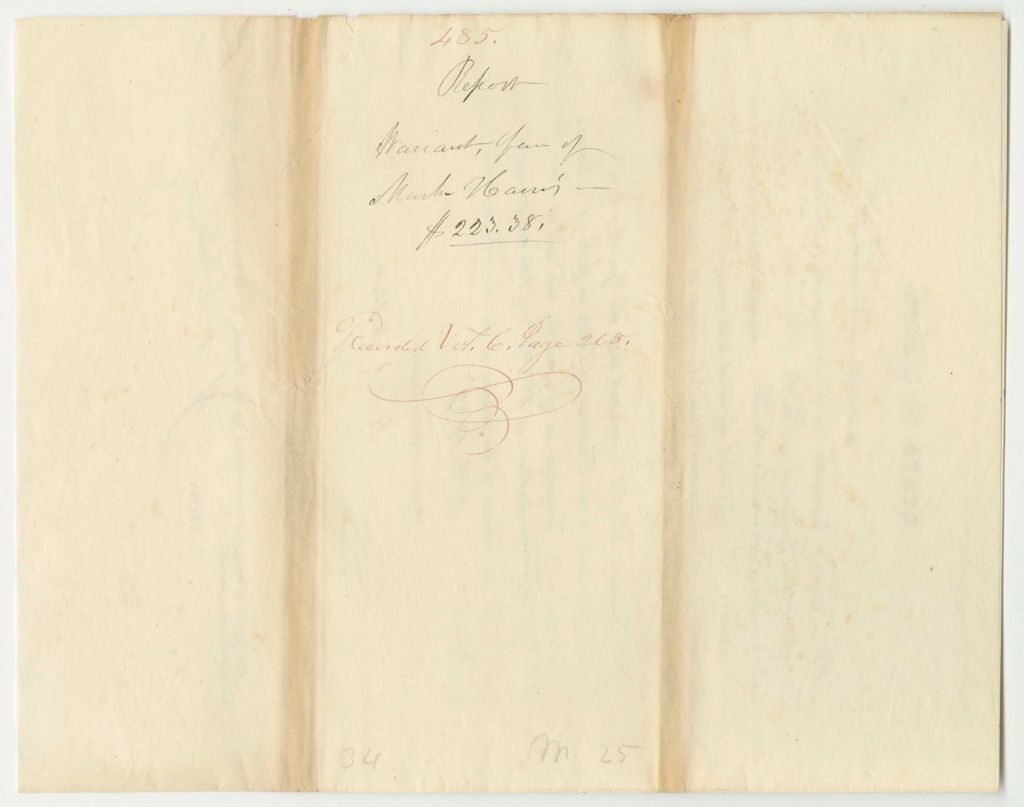 485.
Report
Warrant, favr of
Mark Harris —
$223.38.
Recorded Vol. 6. Page 265.
34 M 25